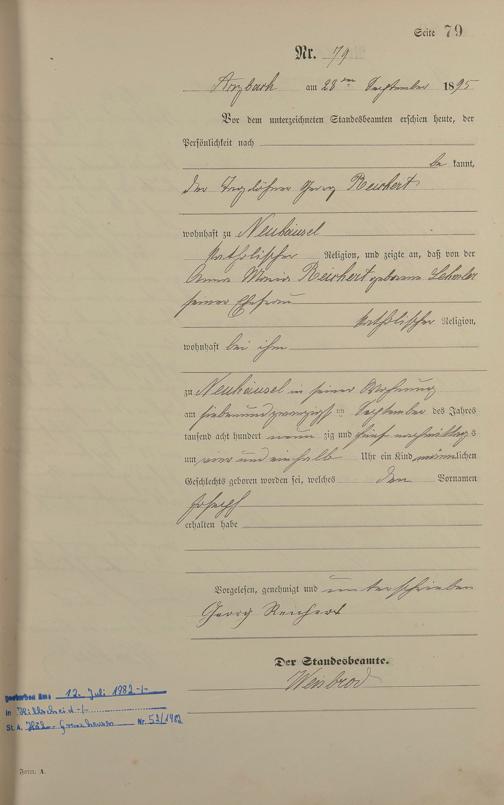 Seite 79
Nr. 79
Arzbach am 28ten September 1895
Vor dem unterzeichneten Standesbeamten erschien heute, der
Persönlichkeit nach
be kannt,
der Taglöhner Georg Reichert
wohnhaft zu Neuhäusel
katholischer Religion, und zeigte an, daß von der
Anna Maria Reichert geborene
seiner Ehefrau
katholischer Religion,
wohnhaft bei ihm
zu Neuhäusel in seiner Wohnung
am siebenundzwanzigsten September des Jahres
tausend acht hundert neun zig und fünf nachmittags
um vier und einhalb Uhr ein Kind männlichen
Geschlechts geboren worden sei, welches den Vornamen
Joseph
erhalten habe
Vorgelesen, genehmigt und unterschrieben
Georg Reichert
Der Standesbeamte.
Weinbrod
gestorben am: 12. Juli 1982 -/-
in Hillscheid -/-
St. A. Höhr-Grenzhausen Nr. 53/1982
Form. A.